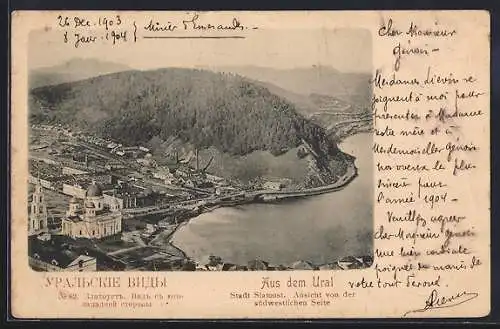 26 Dec. 1903
8 Janv. 1904 } Minier d'Emerandes
Cher Monsieur
Mesdames
se
joignent à moi pour
présenter à Madame
votre mère et à
Mesdemoiselles
nos voeux
pour
l'année 1904 -
Veuillez agréer
cher Monsieur
une bien cordiale
poignée de mains de
votre tout dévoué.
УРАЛЬСКІЕ ВИДЫ
№ 82. Златоустъ. Видъ съ юго-
западной стороны
Aus dem Ural
Stadt Slatoust. Ansicht von der
südwestlichen Seite